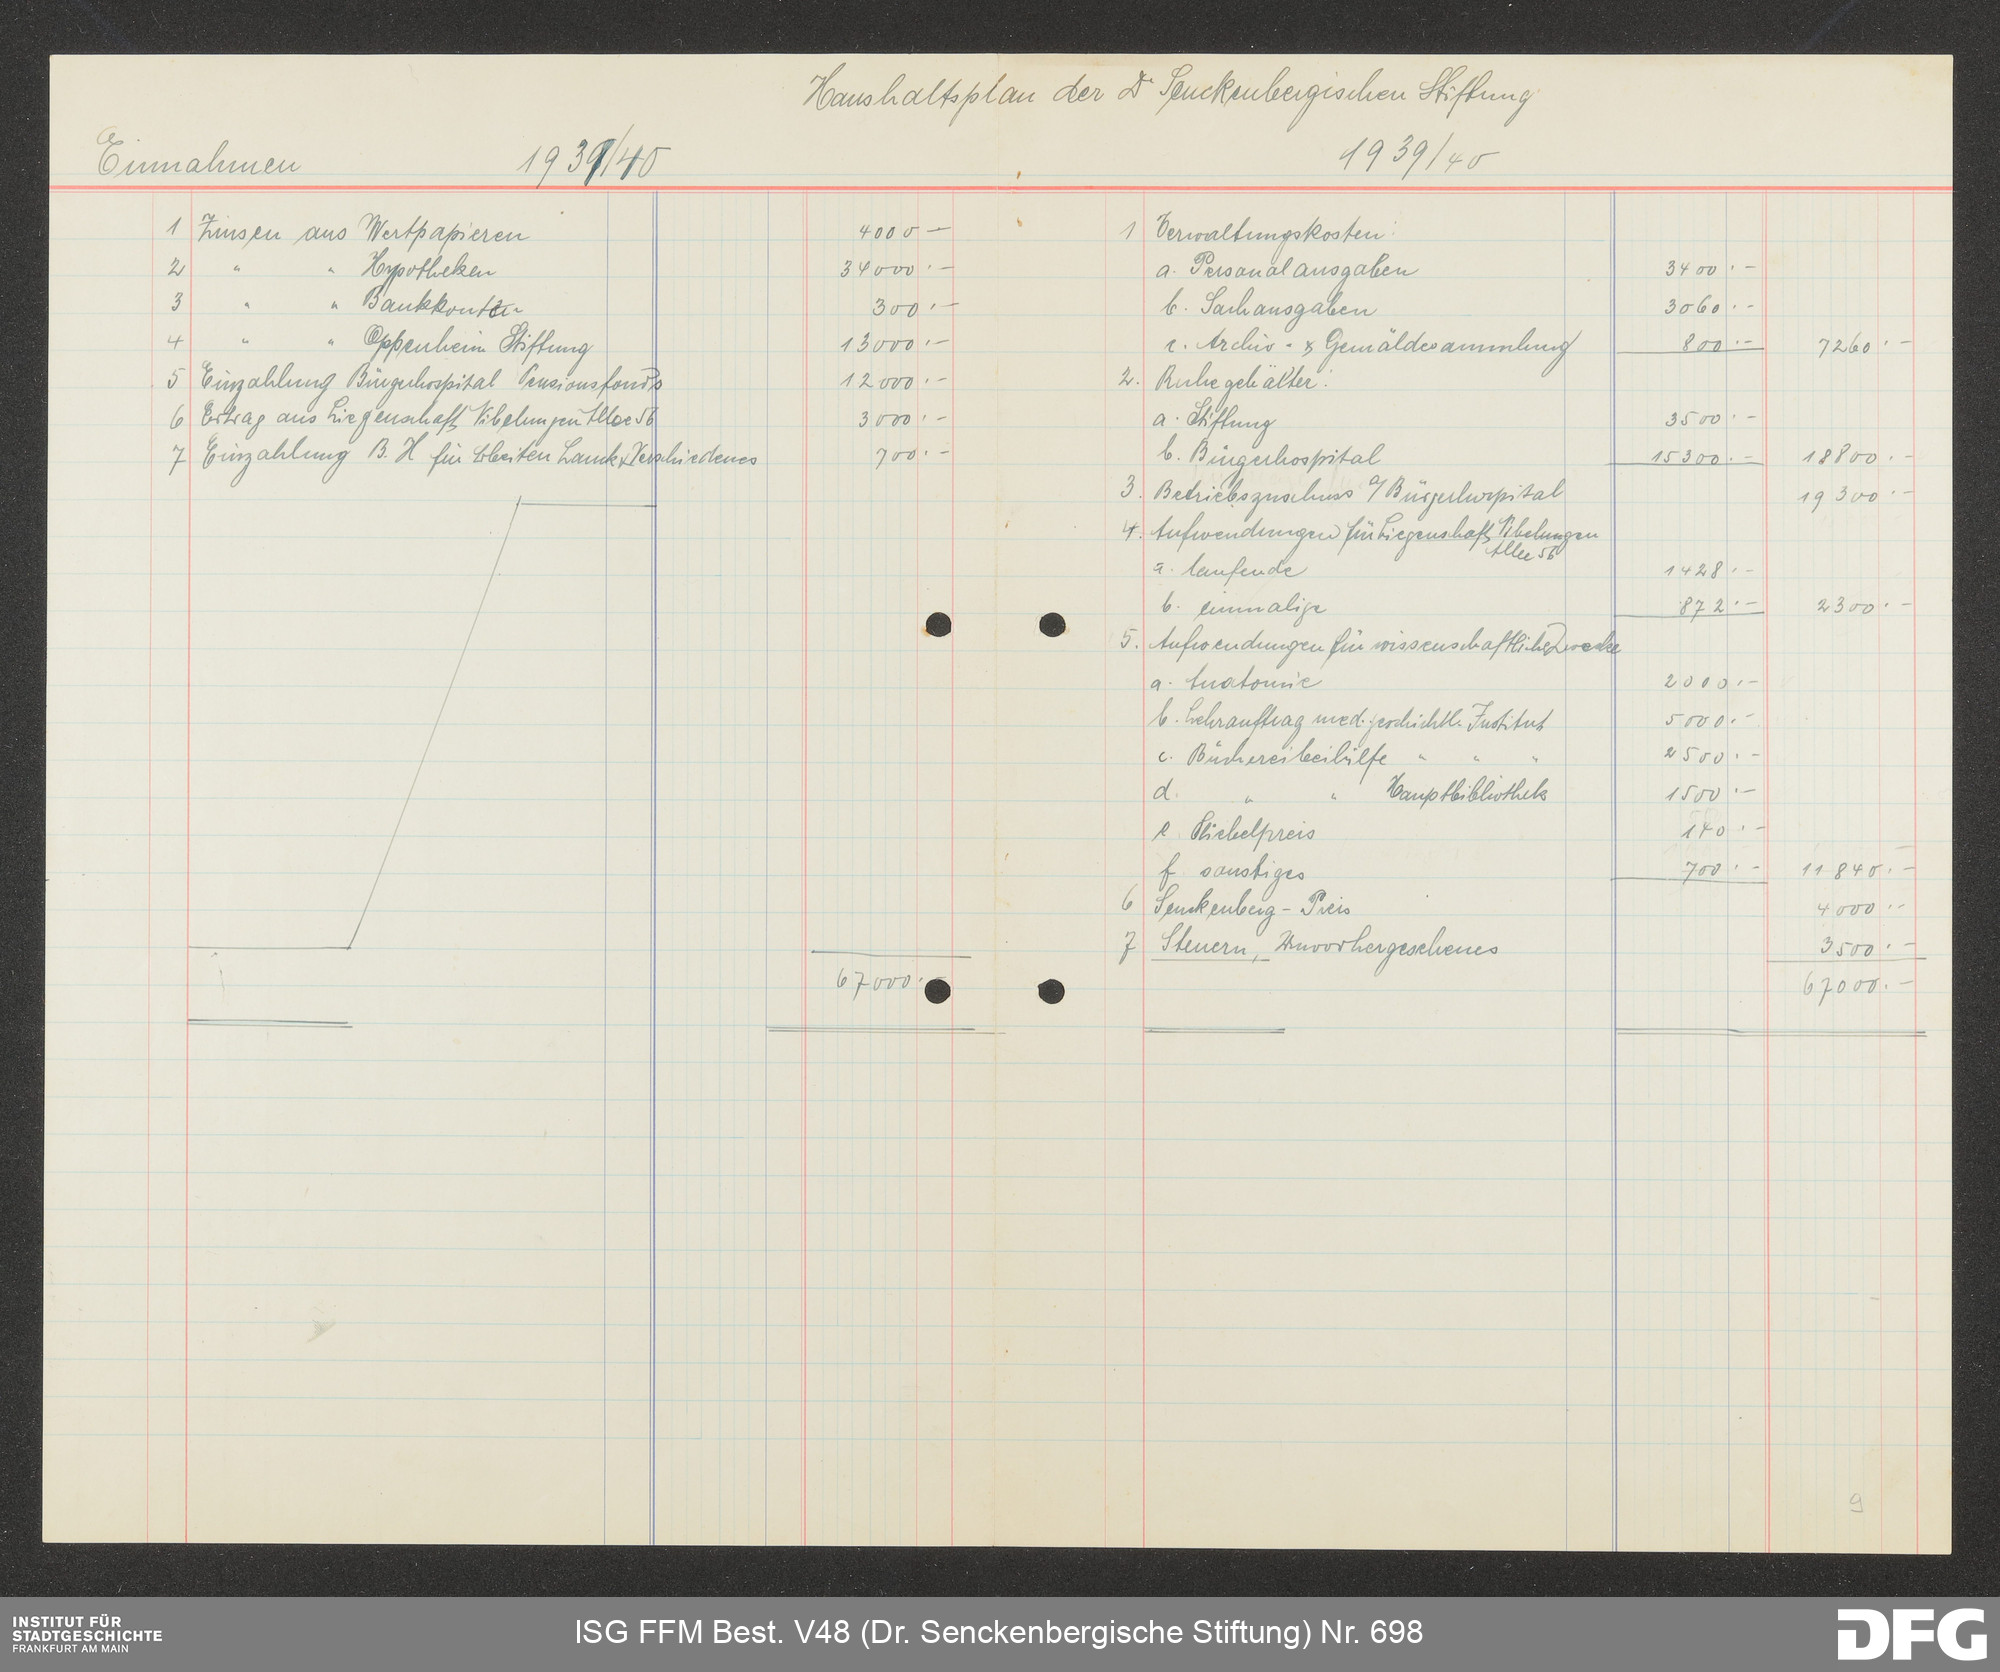 Haushaltsplan der Dr Senckenbergischen Stiftung
Einnahmen 1939/40
1939/40
1 Zinsen aus Wertpapieren 4000 —
2 " " Hypotheken 34000.—
3 " " Bankkonten 300.—
4 " " Oppenheim Stiftung 13000.—
5 Einzahlung Bürgerhospital Pensionsfonds 12000.—
6 Ertrag aus Liegenschaft Nibelungen Allee 56 3000.—
7 Einzahlung B. H für Arbeiten & Verschiedenes 700.—
67000.—
1 Verwaltungskosten:
a. Personalausgaben 3400.—
b. Sachausgaben 3060.—
c. Archiv- & Gemäldesammlung 800.— 7260.—
2. Ruhegehälter:
a. Stiftung 3500.—
b. Bürgerhospital 15300.— 18800.—
3. Betriebszuschuss a/ Bürgerhospital 19300.—
4. Aufwendungen für Liegenschaft Nibelungen
Allee 56
a. laufende 1428.—
b. einmalige 872.— 2300.—
5. Aufwendungen für wissenschaftliche Zwecke
a. Anatomie 2000.—
b. Lehrauftrag med. geschichtl. Institut 5000.—
c. Büchereibeihilfe " " " 2500.—
d. " " Hauptbibliothek 1500.—
e Stiebelpreis 140.—
f sonstiges 700.— 11840.—
6 Senckenberg - Preis 4000.—
7 Steuern, Unvorhergesehenes 3500.—
67000.—
9
INSTITUT FÜR
STADTGESCHICHTE
FRANKFURT AM MAIN
ISG FFM Best. V48 (Dr. Senckenbergische Stiftung) Nr. 698
DFG